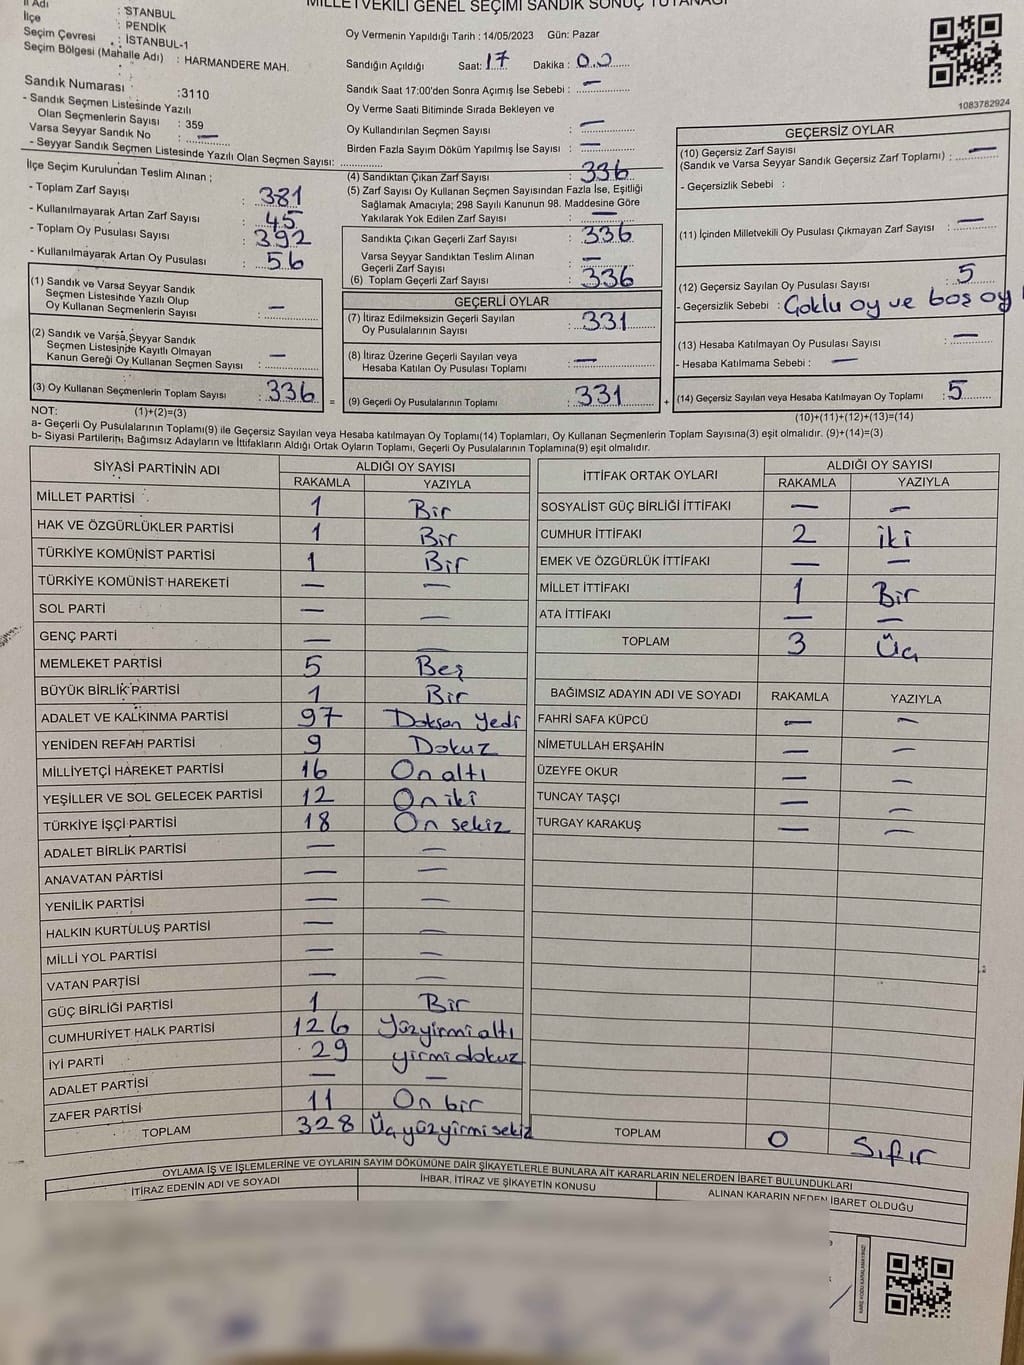 MİLLETVEKİLİ GENEL SEÇİMİ SANDIK SONUÇ TUTANAĞI
İl Adı : İSTANBUL
İlçe : PENDİK
Seçim Çevresi : İSTANBUL-1
Seçim Bölgesi (Mahalle Adı) : HARMANDERE MAH.
Sandık Numarası : 3110
- Sandık Seçmen Listesinde Yazılı
Olan Seçmenlerin Sayısı : 359
Varsa Seyyar Sandık No : —
- Seyyar Sandık Seçmen Listesinde Yazılı Olan Seçmen Sayısı: ..............
Oy Vermenin Yapıldığı Tarih : 14/05/2023 Gün: Pazar
Sandığın Açıldığı Saat: 17 Dakika : 00
Sandık Saat 17:00'den Sonra Açımış İse Sebebi : —
Oy Verme Saati Bitiminde Sırada Bekleyen ve
Oy Kullandırılan Seçmen Sayısı : —
Birden Fazla Sayım Döküm Yapılmış İse Sayısı : —
1083782924
İlçe Seçim Kurulundan Teslim Alınan ;
- Toplam Zarf Sayısı : 381
- Kullanılmayarak Artan Zarf Sayısı : 45
- Toplam Oy Pusulası Sayısı : 392
- Kullanılmayarak Artan Oy Pusulası : 56
(1) Sandık ve Varsa Seyyar Sandık
Seçmen Listesinde Yazılı Olup
Oy Kullanan Seçmenlerin Sayısı : —
(2) Sandık ve Varsa Seyyar Sandık
Seçmen Listesinde Kayıtlı Olmayan
Kanun Gereği Oy Kullanan Seçmen Sayısı : —
(3) Oy Kullanan Seçmenlerin Toplam Sayısı : 336 =
(4) Sandıktan Çıkan Zarf Sayısı : 336
(5) Zarf Sayısı Oy Kullanan Seçmen Sayısından Fazla İse, Eşitliği
Sağlamak Amacıyla; 298 Sayılı Kanunun 98. Maddesine Göre
Yakılarak Yok Edilen Zarf Sayısı : —
Sandıkta Çıkan Geçerli Zarf Sayısı : 336
Varsa Seyyar Sandıktan Teslim Alınan
Geçerli Zarf Sayısı : —
(6) Toplam Geçerli Zarf Sayısı : 336
GEÇERLİ OYLAR
(7) İtiraz Edilmeksizin Geçerli Sayılan
Oy Pusulalarının Sayısı : 331
(8) İtiraz Üzerine Geçerli Sayılan veya
Hesaba Katılan Oy Pusulası Toplamı : —
(9) Geçerli Oy Pusulalarının Toplamı : 331 +
GEÇERSİZ OYLAR
(10) Geçersiz Zarf Sayısı
(Sandık ve Varsa Seyyar Sandık Geçersiz Zarf Toplamı) : —
- Geçersizlik Sebebi :
(11) İçinden Milletvekili Oy Pusulası Çıkmayan Zarf Sayısı : —
(12) Geçersiz Sayılan Oy Pusulası Sayısı : 5
- Geçersizlik Sebebi : Çoklu oy ve boş oy
(13) Hesaba Katılmayan Oy Pusulası Sayısı : —
- Hesaba Katılmama Sebebi : —
(14) Geçersiz Sayılan veya Hesaba Katılmayan Oy Toplamı : 5
NOT: (1)+(2)=(3)
(10)+(11)+(12)+(13)=(14)
a- Geçerli Oy Pusulalarının Toplamı(9) ile Geçersiz Sayılan veya Hesaba katılmayan Oy Toplamı(14) Toplamları, Oy Kullanan Seçmenlerin Toplam Sayısına(3) eşit olmalıdır. (9)+(14)=(3)
b- Siyasi Partilerin, Bağımsız Adayların ve İttifakların Aldığı Ortak Oyların Toplamı, Geçerli Oy Pusulalarının Toplamına(9) eşit olmalıdır.
SİYASİ PARTİNİN ADI ALDIĞI OY SAYISI
RAKAMLA YAZIYLA
MİLLET PARTİSİ 1 Bir
HAK VE ÖZGÜRLÜKLER PARTİSİ 1 Bir
TÜRKİYE KOMÜNİST PARTİSİ 1 Bir
TÜRKİYE KOMÜNİST HAREKETİ — —
SOL PARTİ — —
GENÇ PARTİ — —
MEMLEKET PARTİSİ 5 Beş
BÜYÜK BİRLİK PARTİSİ 1 Bir
ADALET VE KALKINMA PARTİSİ 97 Doksan yedi
YENİDEN REFAH PARTİSİ 9 Dokuz
MİLLİYETÇİ HAREKET PARTİSİ 16 On altı
YEŞİLLER VE SOL GELECEK PARTİSİ 12 On iki
TÜRKİYE İŞÇİ PARTİSİ 18 On sekiz
ADALET BİRLİK PARTİSİ — —
ANAVATAN PARTİSİ — —
YENİLİK PARTİSİ — —
HALKIN KURTULUŞ PARTİSİ — —
MİLLİ YOL PARTİSİ — —
VATAN PARTİSİ — —
GÜÇ BİRLİĞİ PARTİSİ 1 Bir
CUMHURİYET HALK PARTİSİ 126 Yüzyirmialtı
İYİ PARTİ 29 yirmidokuz
ADALET PARTİSİ — —
ZAFER PARTİSİ 11 On bir
TOPLAM 328 Üçyüzyirmisekiz
İTTİFAK ORTAK OYLARI ALDIĞI OY SAYISI
RAKAMLA YAZIYLA
SOSYALİST GÜÇ BİRLİĞİ İTTİFAKI — —
CUMHUR İTTİFAKI 2 iki
EMEK VE ÖZGÜRLÜK İTTİFAKI — —
MİLLET İTTİFAKI 1 Bir
ATA İTTİFAKI — —
TOPLAM 3 Üç
BAĞIMSIZ ADAYIN ADI VE SOYADI RAKAMLA YAZIYLA
FAHRİ SAFA KÜPCÜ — —
NİMETULLAH ERŞAHİN — —
ÜZEYFE OKUR — —
TUNCAY TAŞÇI — —
TURGAY KARAKUŞ — —
TOPLAM 0 Sıfır
OYLAMA İŞ VE İŞLEMLERİNE VE OYLARIN SAYIM DÖKÜMÜNE DAİR ŞİKAYETLERLE BUNLARA AİT KARARLARIN NELERDEN İBARET BULUNDUKLARI
İTİRAZ EDENİN ADI VE SOYADI İHBAR, İTİRAZ VE ŞİKAYETİN KONUSU ALINAN KARARIN NEDEN İBARET OLDUĞU